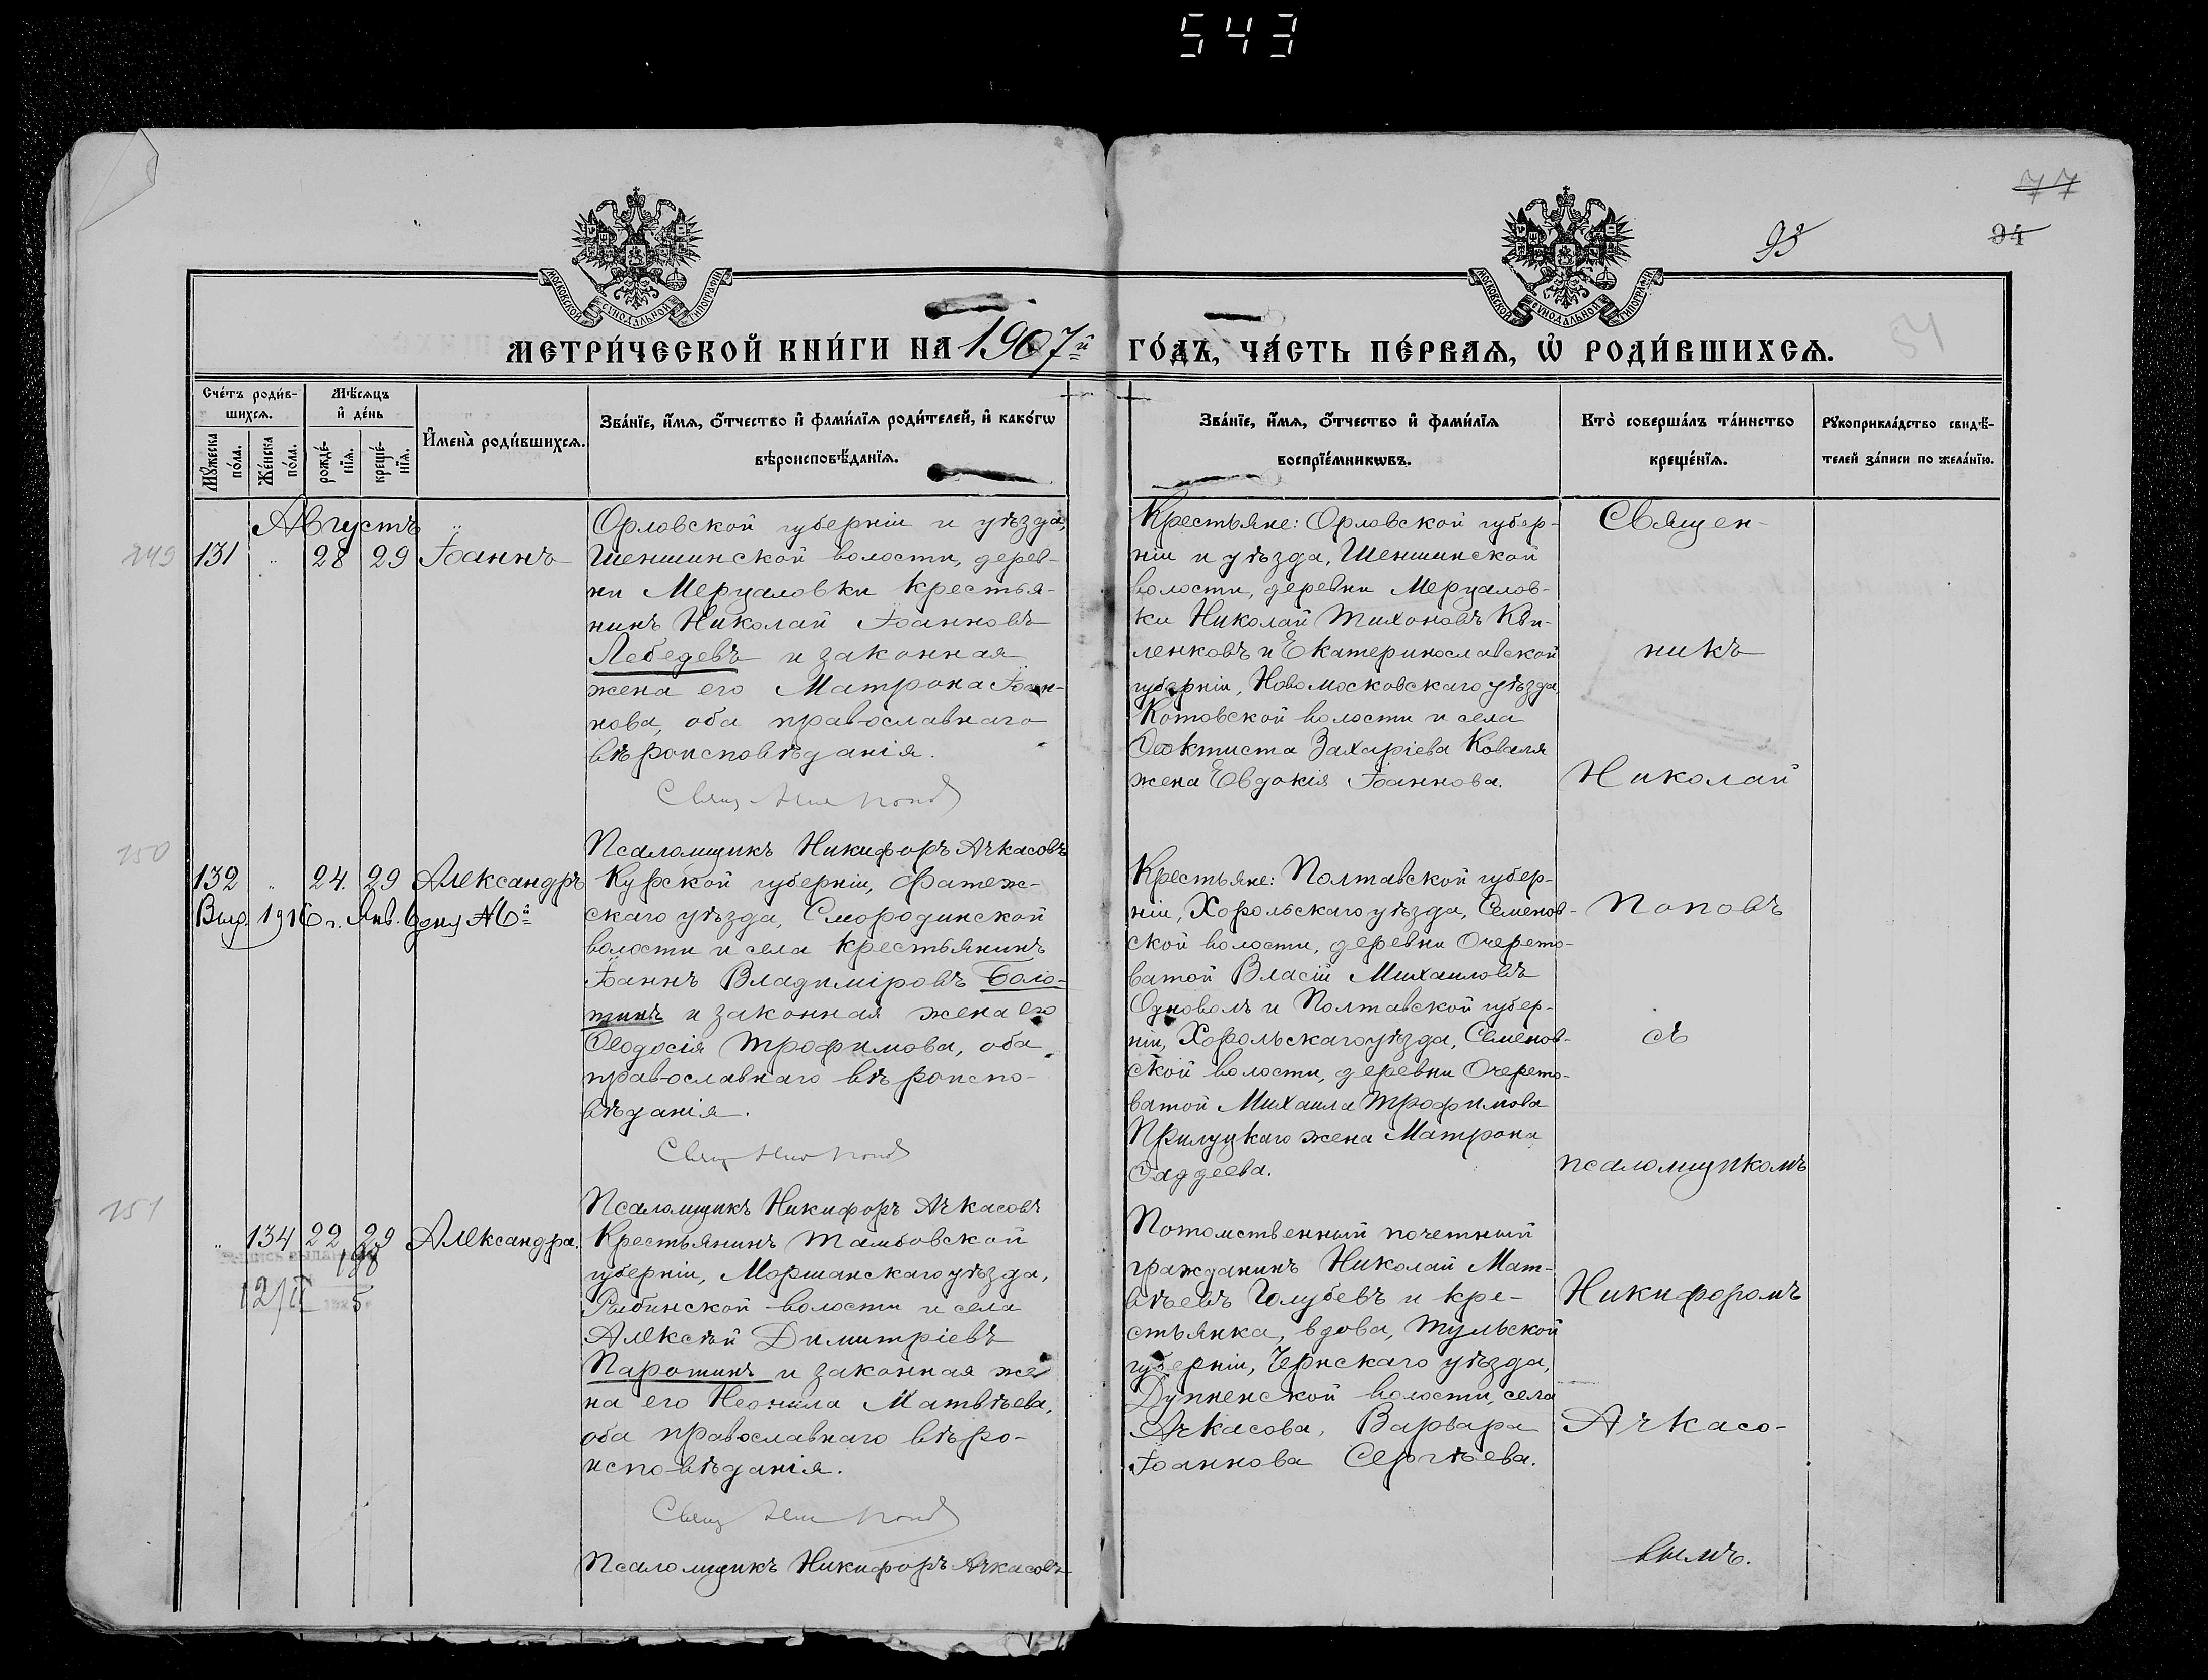 543
77
93
94
54
МОСКОВСКОЙ СѴНОДАЛЬНОЙ ТИПОГРАФІИ
МОСКОВСКОЙ СѴНОДАЛЬНОЙ ТИПОГРАФІИ
МЕТРИ́ЧЕСКОЙ КНИ́ГИ НА 1907й ГО́ДЪ, ЧА́СТЬ ПЕ́РВАЯ, Ѡ РОДИ́ВШИХСЯ.
Сче́тъ роди́в-
шихся.
Мѣ́сяцъ
и де́нь
Мꙋ́жеска
по́ла.
Же́нска
по́ла.
рожде́-
нїя.
креще́-
нїя.
И҆мена̀ роди́вшихся.
Зва́нїе, и҆́мя, ѻ҆́тчество и҆ фами́лїя роди́телей, и҆ како́гѡ
вѣроисповѣ́данїя.
Зва́нїе, и҆́мя, ѻ҆́тчество и҆ фами́лїя
воспрїе́мникѡвъ.
Кто̀ соверша́лъ та́инство
креще́нїя.
Рꙋкоприкла́дство свидѣ́-
телей за́писи по жела́нїю.
Августъ
149
131 " 28 29 Іоаннъ
Орловской губерніи и уѣзда,
Шеншинской волости, дерев-
ни Мерцаловки крестья-
нинъ Николай Іоанновъ
Лебедевъ и законная
жена его Матрона Іоан-
нова, оба православнаго
вѣроисповѣданія.
Свящ. Ник Попов
Псаломщикъ Никифоръ Ачкасовъ
Крестьяне: Орловской губер-
ніи и уѣзда, Шеншинской
волости, деревни Мерцалов-
ки Николай Тихоновъ Кви-
ленковъ и Екатеринославской
губерніи, Новомосковскаго уѣзда,
Котовской волости и села
Ѳеоктиста Захаріева Коваля
жена Евдокія Іоаннова.
Священ-
никъ
Николай
Поповъ
съ
псаломщикомъ
Никифоромъ
Ачкасо-
вымъ.
150
132 " 24. 29 Александръ
Выд. 1916 г. Янв. 6 дня №
Курской губерніи, Фатеж-
скаго уѣзда, Смородинской
волости и села крестьянинъ
Іоаннъ Владиміровъ Боло-
тинъ и законная жена его
Ѳеодосія Трофимова, оба
православнаго вѣроиспо-
вѣданія.
Свящ Ник Попов
Псаломщикъ Никифоръ Ачкасовъ
Крестьяне: Полтавской губер-
ніи, Хорольскаго уѣзда, Семенов-
ской волости, деревни Очерето-
ватой Власій Михаиловъ
Одноволъ и Полтавской губер-
ніи, Хорольскаго уѣзда, Семенов-
ской волости, деревни Очерето-
ватой Михаила Трофимова
Прилуцкаго жена Матрона
Ѳаддеева.
151
" 134 22 29 Александра.
188
12/II 1925
Крестьянинъ Тамбовской
губерніи, Моршанскаго уѣзда,
Рыбинской волости и села
Алексѣй Димитріевъ
Паротинъ и законная же-
на его Неонила Матвѣева,
оба православнаго вѣро-
исповѣданія.
Свящ Ник Попов
Псаломщикъ Никифоръ Ачкасовъ
Потомственный почетный
гражданинъ Николай Мат-
вѣевъ Голубевъ и кре-
стьянка, вдова, Тульской
губерніи, Чернскаго уѣзда,
Дупненской волости, села
Ачкасова, Варвара
Іоаннова Сергѣева.